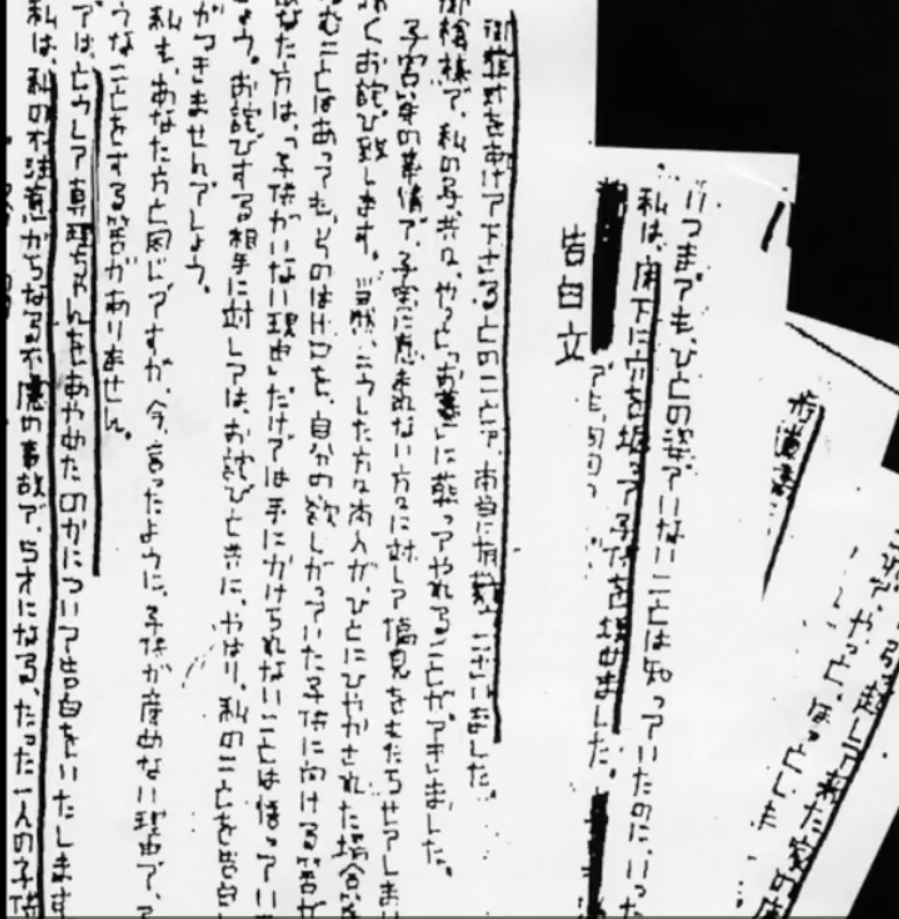 これで、やっと、ほっとしま
引越して来た家の床
いつまでも、ひとの姿でいないことは知っていたのに、いった
私は、床下に穴を掘って子供を埋めました。
告白文
御葬式をあげて下さるとのことで、本当に有難うございました。
御蔭様で、私の子共々、やっと、お墓に葬ってやれることができました。
子宮等の事情で、子宝に恵まれない方々に対して偏見をもたらせてしまい
くお詫び致します。当然、こうした方々本人が、ひとにひやかされた場合
むことはあっても、そのはけ口を、自分の欲しがっていた子供に向ける筈が
あなた方は、「子供がいない理由」だけでは手にかけられないことは悟ってい
ょう。お詫びする相手に対しては、お詫びと共に、やはり、私のことを告白し
がつきませんでしょう。
私も、あなた方と同じですが、今、言ったように、子供が産めない理由で、こ
うなことをする筈がありません。
では、どうして真理ちゃんをあやめたのかについて告白をいたします
私は、私の不注意がちなる不慮の事故で、5才になる、たった一人の子供